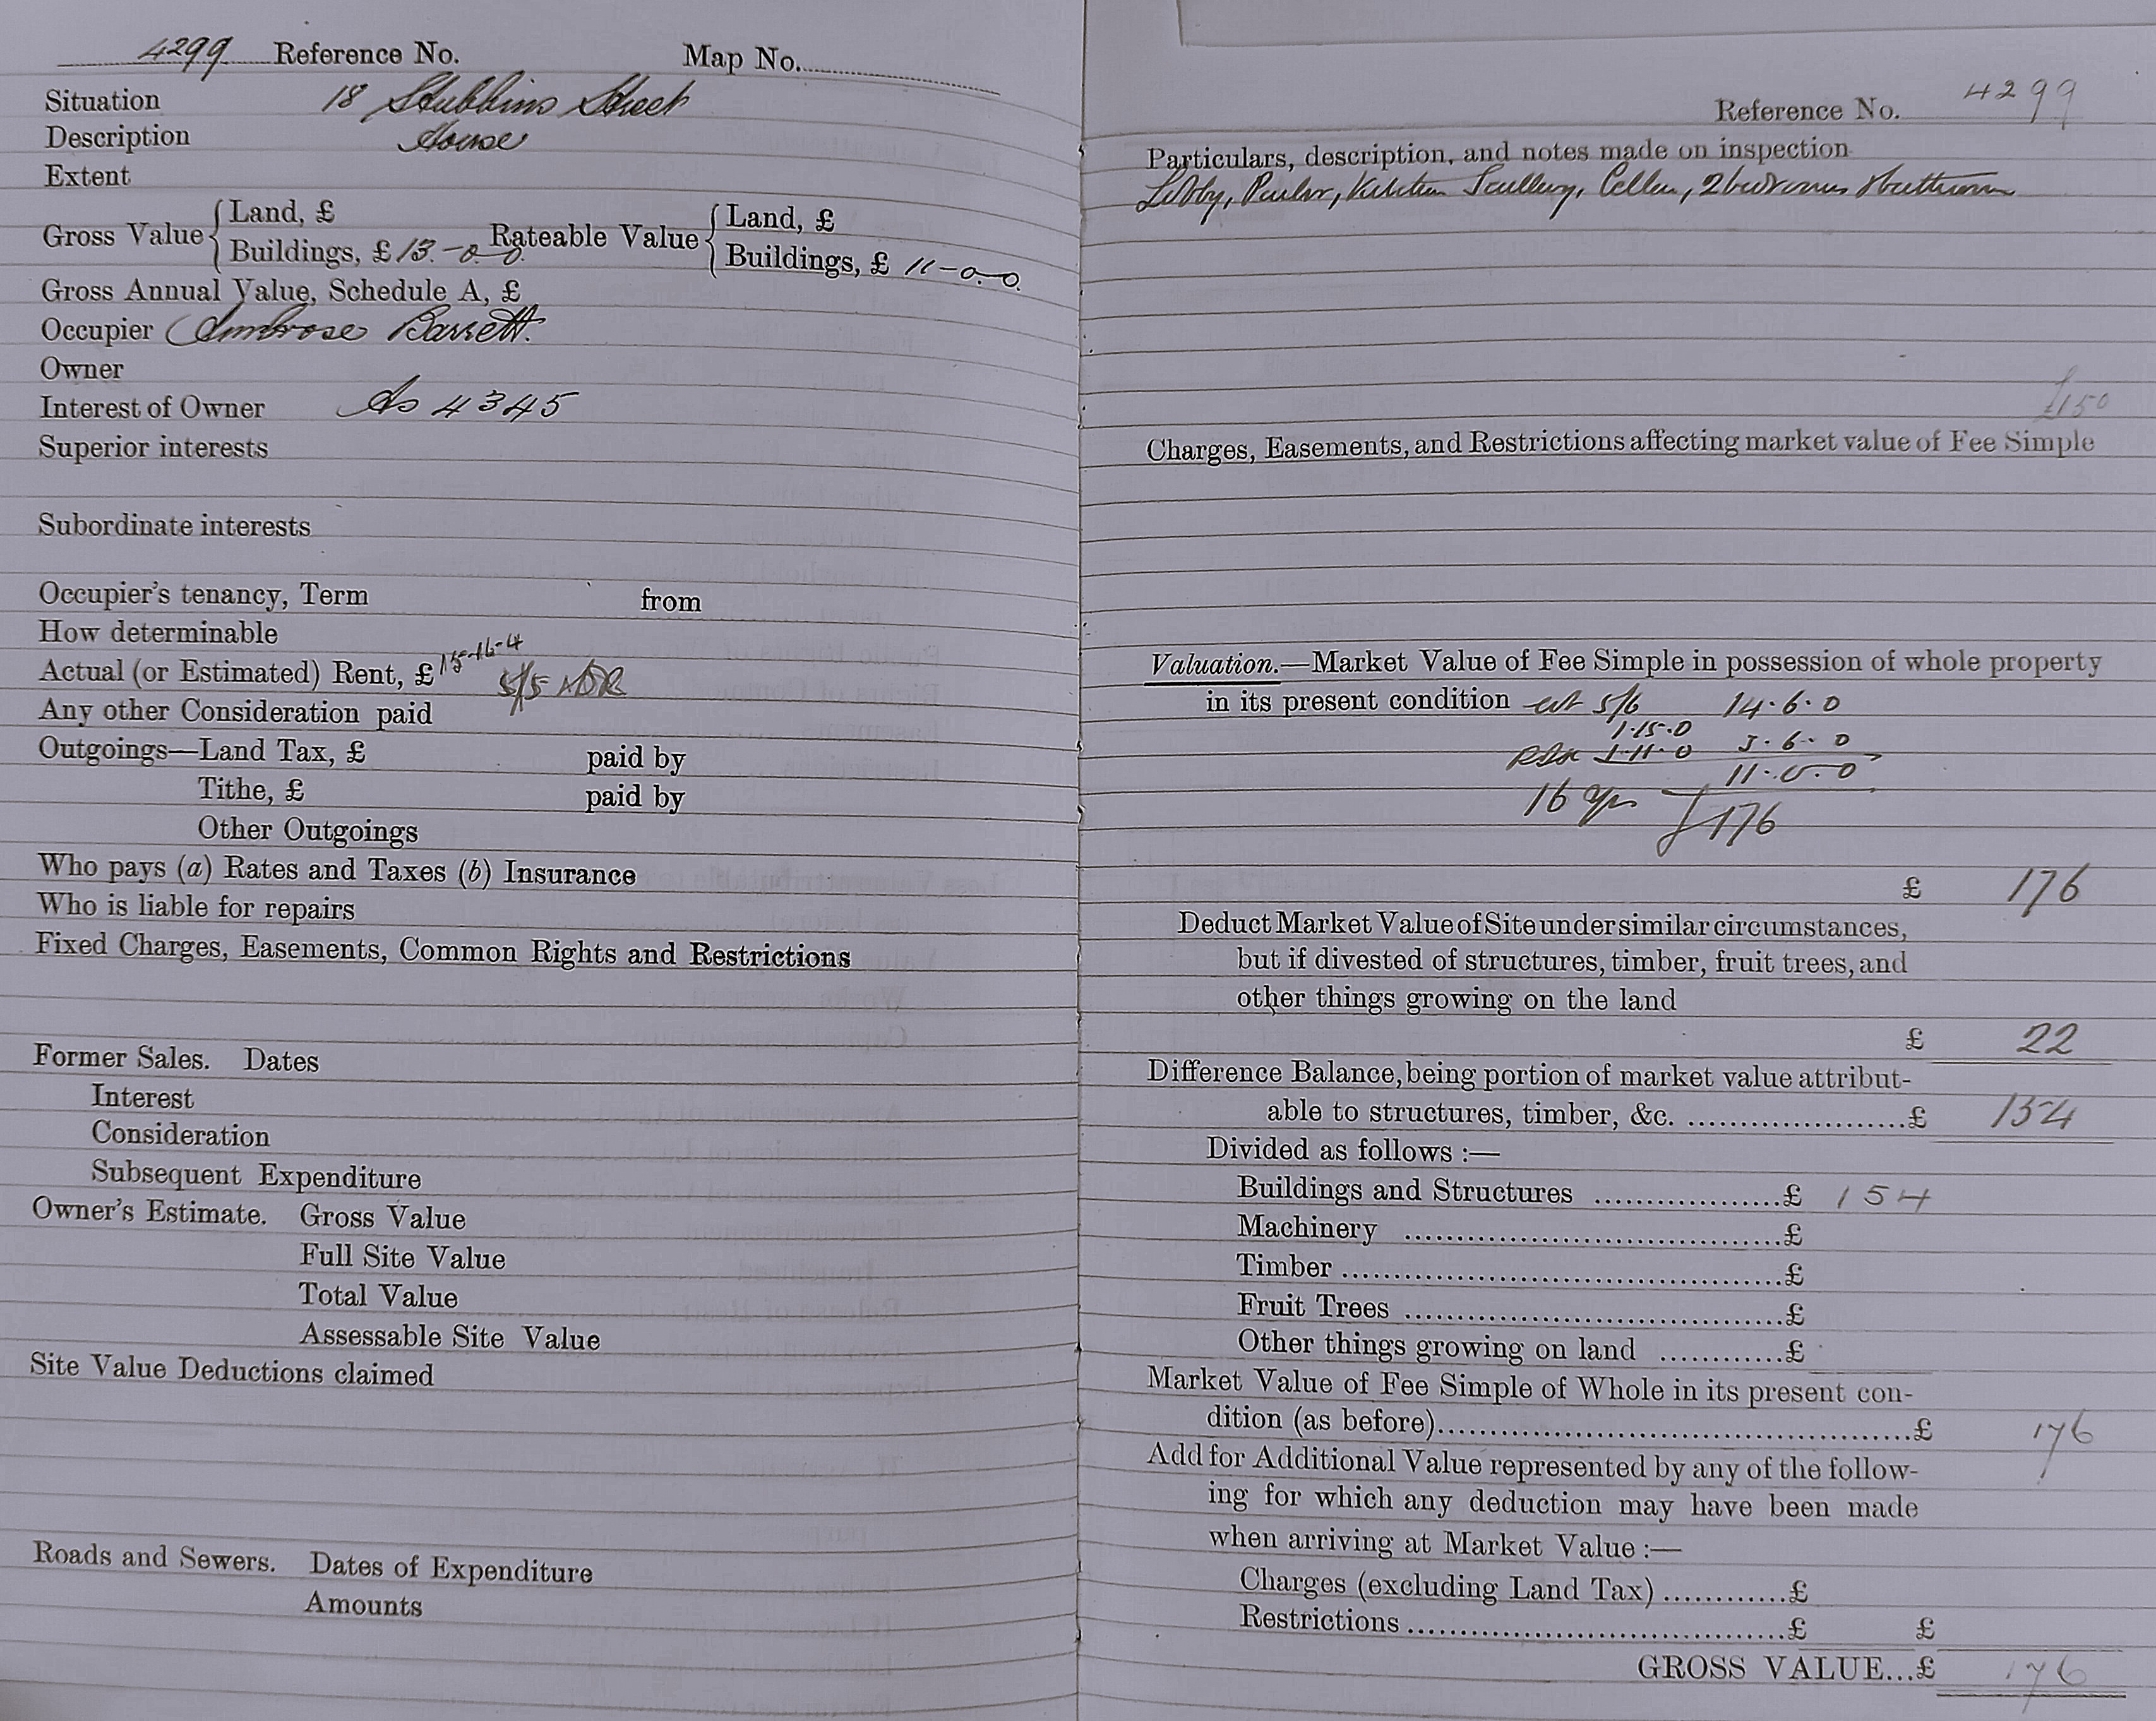 4299 Reference No. Map No.
Situation 18 Stubbins Street
Description House
Extent
Gross Value { Land, £
Buildings, £ 13-0-0 Rateable Value { Land, £
Buildings, £ 11-0-0
Gross Annual Value, Schedule A, £
Occupier Ambrose Barrett.
Owner
Interest of Owner As 4345
Superior interests
Subordinate interests
Occupier's tenancy, Term from
How determinable
Actual (or Estimated) Rent, £ 15-16-4 5/5
Any other Consideration paid
Outgoings—Land Tax, £ paid by
Tithe, £ paid by
Other Outgoings
Who pays (a) Rates and Taxes (b) Insurance
Who is liable for repairs
Fixed Charges, Easements, Common Rights and Restrictions
Former Sales. Dates
Interest
Consideration
Subsequent Expenditure
Owner's Estimate. Gross Value
Full Site Value
Total Value
Assessable Site Value
Site Value Deductions claimed
Roads and Sewers. Dates of Expenditure
Amounts
Reference No. 4299
Particulars, description, and notes made on inspection
Lobby, Parlor, Kitchen Scullery, Cellar, 2 bedrooms & bathroom
£150
Charges, Easements, and Restrictions affecting market value of Fee Simple
Valuation.—Market Value of Fee Simple in possession of whole property
in its present condition at 5/6 14.6.0
1.15.0
1.11.0 3.6.0
11.0.0
16 yrs £176
£ 176
Deduct Market Value of Site under similar circumstances,
but if divested of structures, timber, fruit trees, and
other things growing on the land
£ 22
Difference Balance, being portion of market value attribut-
able to structures, timber, &c. ..................... £ 154
Divided as follows :—
Buildings and Structures ................... £ 154
Machinery ...................................... £
Timber ............................................ £
Fruit Trees ...................................... £
Other things growing on land ............ £
Market Value of Fee Simple of Whole in its present con-
dition (as before)................................................ £ 176
Add for Additional Value represented by any of the follow-
ing for which any deduction may have been made
when arriving at Market Value :—
Charges (excluding Land Tax) ............ £
Restrictions ...................................... £ £
GROSS VALUE...£ 176